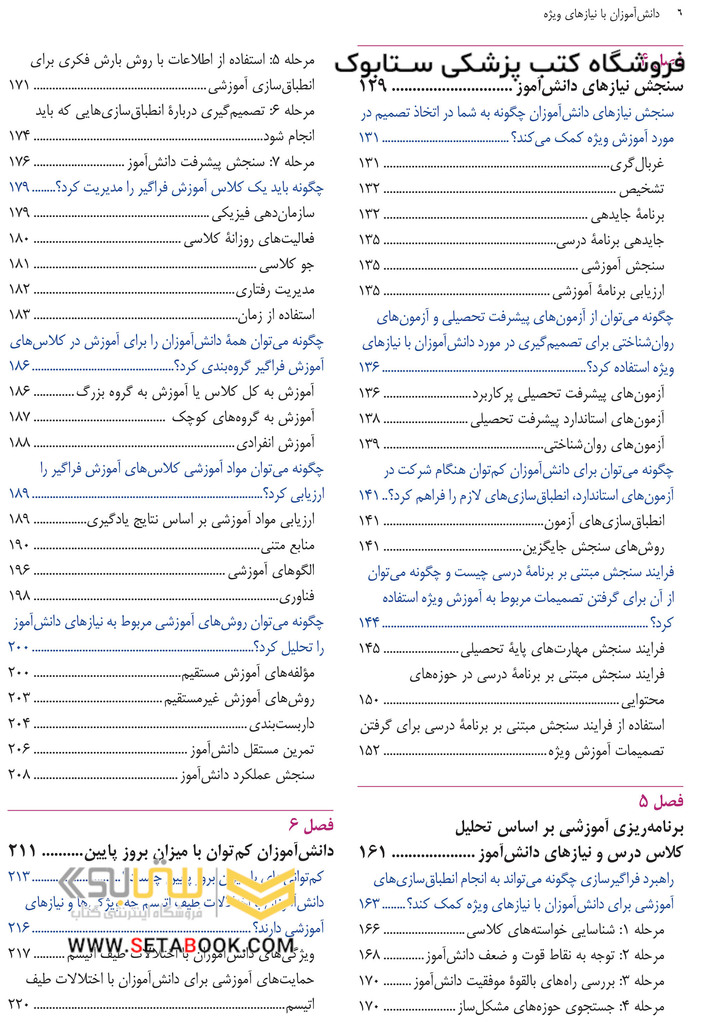 ۶ دانش‌آموزان با نیازهای ویژه
فروشگاه کتب پزشکی ستابوک
سنجش نیازهای دانش‌آموز ............................ ۱۲۹
سنجش نیازهای دانش‌آموزان چگونه به شما در اتخاذ تصمیم در
مورد آموزش ویژه کمک می‌کند؟ ............................ ۱۳۱
غربال‌گری ............................ ۱۳۱
تشخیص ............................ ۱۳۲
برنامهٔ جایدهی ............................ ۱۳۲
جایدهی برنامهٔ درسی ............................ ۱۳۵
سنجش آموزشی ............................ ۱۳۵
ارزیابی برنامهٔ آموزشی ............................ ۱۳۵
چگونه می‌توان از آزمون‌های پیشرفت تحصیلی و آزمون‌های
روان‌شناختی برای تصمیم‌گیری در مورد دانش‌آموزان با نیازهای
ویژه استفاده کرد؟ ............................ ۱۳۶
آزمون‌های پیشرفت تحصیلی پرکاربرد ............................ ۱۳۶
آزمون‌های استاندارد پیشرفت تحصیلی ............................ ۱۳۸
آزمون‌های روان‌شناختی ............................ ۱۳۹
چگونه می‌توان برای دانش‌آموزان کم‌توان هنگام شرکت در
آزمون‌های استاندارد، انطباق‌سازی‌های لازم را فراهم کرد؟.. ۱۴۱
انطباق‌سازی‌های آزمون ............................ ۱۴۱
روش‌های سنجش جایگزین ............................ ۱۴۱
فرایند سنجش مبتنی بر برنامهٔ درسی چیست و چگونه می‌توان
از آن برای گرفتن تصمیمات مربوط به آموزش ویژه استفاده
کرد؟ ............................ ۱۴۴
فرایند سنجش مهارت‌های پایهٔ تحصیلی ............................ ۱۴۵
فرایند سنجش مبتنی بر برنامهٔ درسی در حوزه‌های
محتوایی ............................ ۱۵۰
استفاده از فرایند سنجش مبتنی بر برنامهٔ درسی برای گرفتن
تصمیمات آموزش ویژه ............................ ۱۵۲
فصل ۵
برنامه‌ریزی آموزشی بر اساس تحلیل
کلاس درس و نیازهای دانش‌آموز ............................ ۱۶۱
راهبرد فراگیرسازی چگونه می‌تواند به انجام انطباق‌سازی‌های
آموزشی برای دانش‌آموزان با نیازهای ویژه کمک کند؟ ........ ۱۶۳
مرحله ۱: شناسایی خواسته‌های کلاسی ............................ ۱۶۶
مرحله ۲: توجه به نقاط قوت و ضعف دانش‌آموز ............................ ۱۶۸
مرحله ۳: بررسی راه‌های بالقوهٔ موفقیت دانش‌آموز ......... ۱۷۰
مرحله ۴: جستجوی حوزه‌های مشکل‌ساز ............................ ۱۷۰
مرحله ۵: استفاده از اطلاعات با روش بارش فکری برای
انطباق‌سازی آموزشی ............................ ۱۷۱
مرحله ۶: تصمیم‌گیری دربارهٔ انطباق‌سازی‌هایی که باید
انجام شود ............................ ۱۷۴
مرحله ۷: سنجش پیشرفت دانش‌آموز ............................ ۱۷۶
چگونه باید یک کلاس آموزش فراگیر را مدیریت کرد؟ ........ ۱۷۹
سازمان‌دهی فیزیکی ............................ ۱۷۹
فعالیت‌های روزانهٔ کلاسی ............................ ۱۸۰
جو کلاسی ............................ ۱۸۱
مدیریت رفتاری ............................ ۱۸۲
استفاده از زمان ............................ ۱۸۳
چگونه می‌توان همهٔ دانش‌آموزان را برای آموزش در کلاس‌های
آموزش فراگیر گروه‌بندی کرد؟ ............................ ۱۸۶
آموزش به کل کلاس یا آموزش به گروه بزرگ ............. ۱۸۶
آموزش به گروه‌های کوچک ............................ ۱۸۷
آموزش انفرادی ............................ ۱۸۸
چگونه می‌توان مواد آموزشی کلاس‌های آموزش فراگیر را
ارزیابی کرد؟ ............................ ۱۸۹
ارزیابی مواد آموزشی بر اساس نتایج یادگیری ................. ۱۸۹
منابع متنی ............................ ۱۹۰
الگوهای آموزشی ............................ ۱۹۶
فناوری ............................ ۱۹۸
چگونه می‌توان روش‌های آموزشی مربوط به نیازهای دانش‌آموز
را تحلیل کرد؟ ............................ ۲۰۰
مؤلفه‌های آموزش مستقیم ............................ ۲۰۰
روش‌های آموزش غیرمستقیم ............................ ۲۰۳
داربست‌بندی ............................ ۲۰۴
تمرین مستقل دانش‌آموز ............................ ۲۰۶
سنجش عملکرد دانش‌آموز ............................ ۲۰۸
فصل ۶
دانش‌آموزان کم‌توان با میزان بروز پایین .......... ۲۱۱
کم‌توانی‌های با میزان بروز پایین چیست؟ ............................ ۲۱۳
دانش‌آموزان با اختلالات طیف اتیسم چه ویژگی‌ها و نیازهای
آموزشی دارند؟ ............................ ۲۱۶
ستابوک
فروشگاه اینترنتی کتاب
WWW.SETABOOK.COM
ویژگی‌های دانش‌آموزان با اختلالات طیف اتیسم .......... ۲۱۷
حمایت‌های آموزشی برای دانش‌آموزان با اختلالات طیف
اتیسم ............................ ۲۲۰